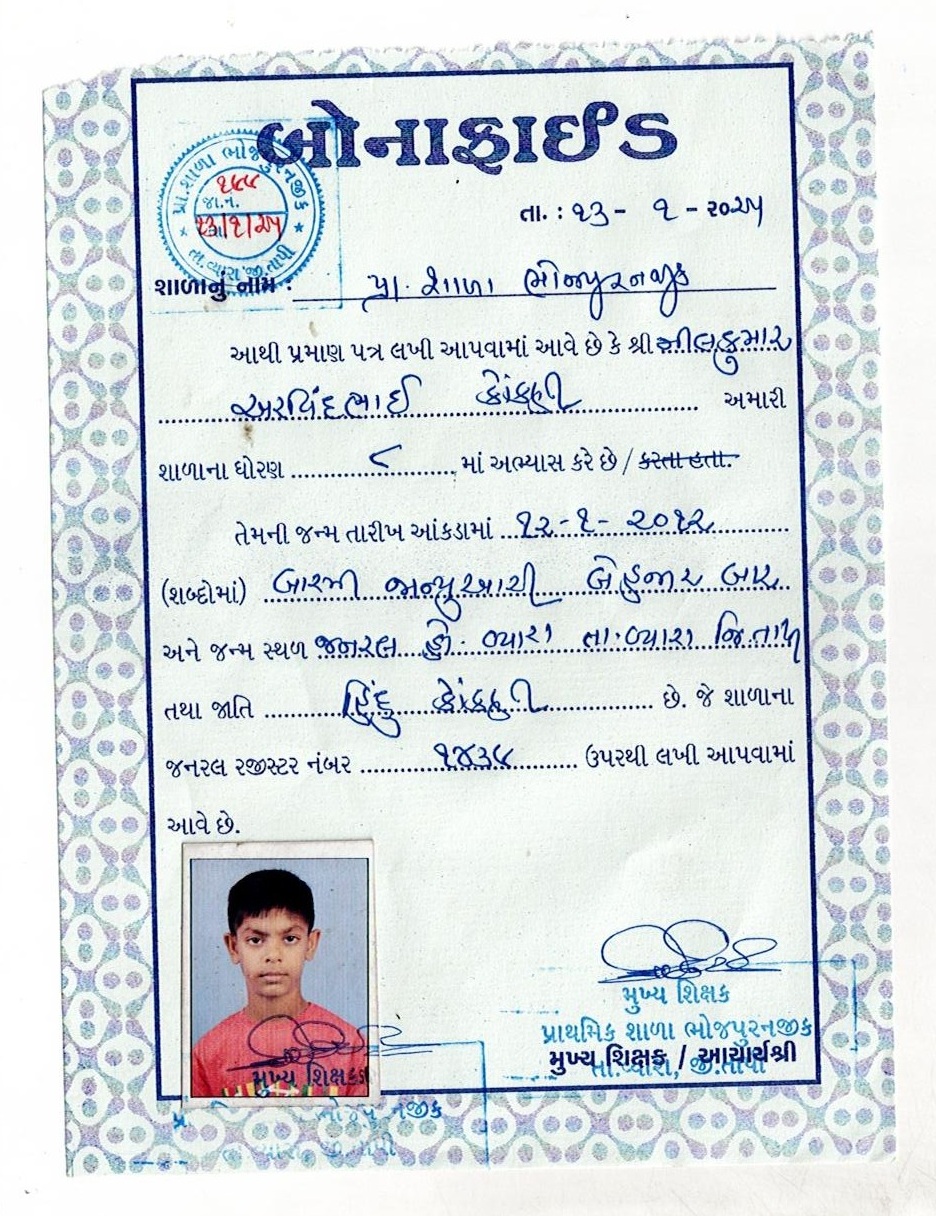 બોનાફાઈડ
પ્રા.શાળા ભોજપુરનજીક
જા.ન.
૨૩/૧/૨૫
તા.વ્યારા જી.તાપી
તા. : ૨૩ - ૧ - ૨૦૨૫
શાળાનું નામ : પ્રા. શાળા ભોજપુરનજીક
આથી પ્રમાણ પત્ર લખી આપવામાં આવે છે કે શ્રી નીલકુમાર
અરવિંદભાઈ કોંકણી અમારી
શાળાના ધોરણ ૮ માં અભ્યાસ કરે છે / કરતા હતા.
તેમની જન્મ તારીખ આંકડામાં ૧૨-૧-૨૦૧૨
(શબ્દોમાં) બારમી જાન્યુઆરી બેહજાર બાર
અને જન્મ સ્થળ જનરલ હો. વ્યારા તા.વ્યારા જિ.તાપી
તથા જાતિ હિંદુ કોંકણી છે. જે શાળાના
જનરલ રજીસ્ટર નંબર ૧૪૩૫ ઉપરથી લખી આપવામાં
આવે છે.
મુખ્ય શિક્ષક
પ્રાથમિક શાળા ભોજપુરનજીક
મુખ્ય શિક્ષક / આચાર્યશ્રી
તા.વ્યારા, જી.તાપી
મુખ્ય શિક્ષક
ભોજપુરનજીક